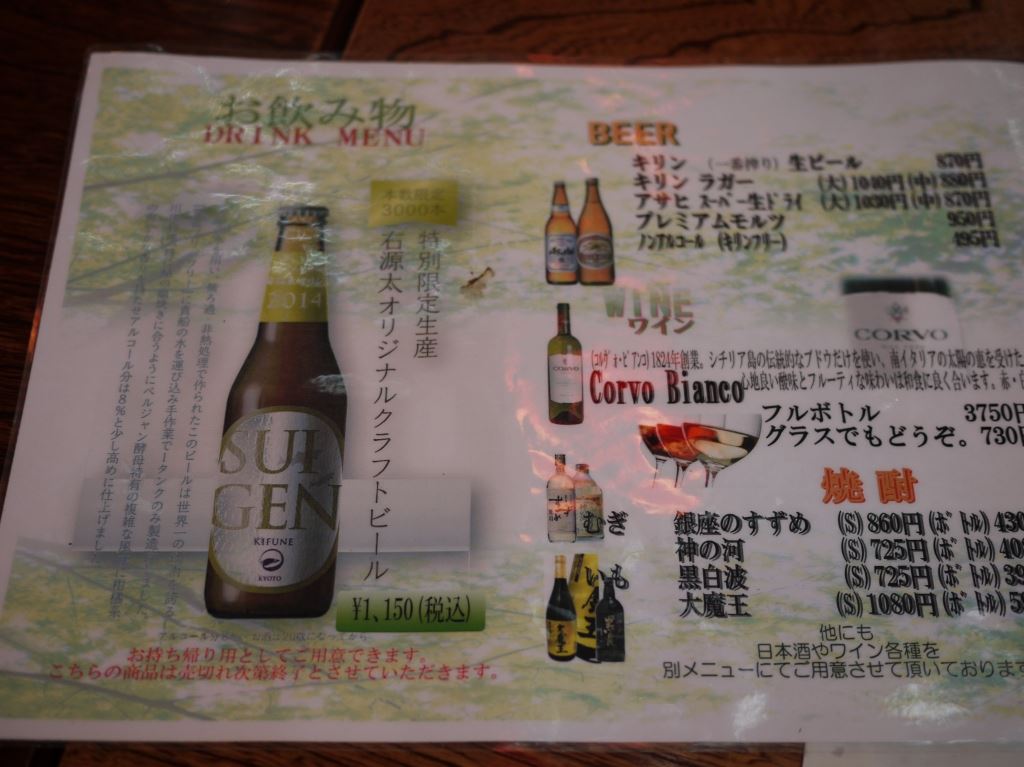 お飲み物
DRINK MENU
本数限定
3000本
特別限定生産
石源太オリジナルクラフトビール
非熱処理で作られたこのビールは世界一の
に貴船の水を運び込み手作業で1タンクのみ製造
に合うようにベルジャン酵母特有の複雑な風
アルコール分は8%と少し高めに仕上げました。
2014
SUI
GEN
KIFUNE
KYOTO
¥1,150(税込)
お持ち帰り用としてご用意できます。
こちらの商品は売切れ次第終了とさせていただきます。
BEER
キリン (一番搾り) 生ビール 870円
キリン ラガー (大)1040円(中)880円
アサヒ スーパー生ドライ (大)1030円(中)870円
プレミアムモルツ 950円
ノンアルコール (キリンフリー) 495円
Asahi
WINE
ワイン
CORVO
CORVO
(コルヴォ・ビアンコ)1824年創業。シチリア島の伝統的なブドウだけを使い、南イタリアの太陽の恵を受けた
Corvo Bianco
心地良い酸味とフルーティな味わいは和食に良く合います。赤・
フルボトル 3750円
グラスでもどうぞ。730円
焼酎
むぎ
銀座のすずめ (S)860円(ボトル)430
神の河 (S)725円(ボトル)40
いも
黒白波 (S)725円(ボトル)39
大魔王 (S)1080円(ボトル)5
他にも
日本酒やワイン各種を
別メニューにてご用意させて頂いております